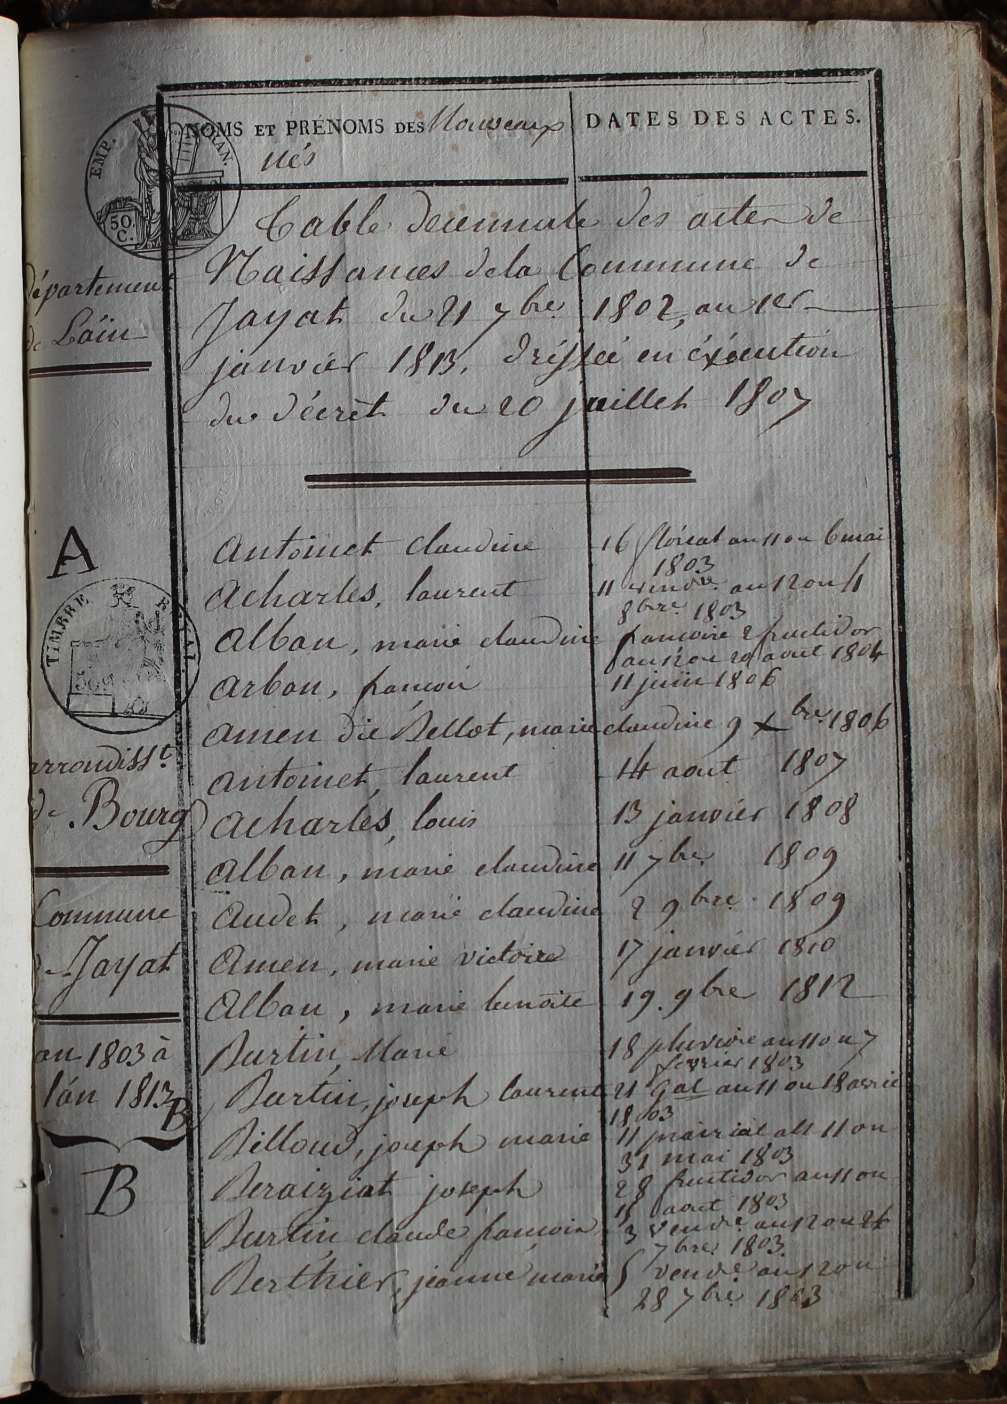 NOMS ET PRÉNOMS DES Nouveaux
nés
DATES DES ACTES.
EMP. FRAN.
50
C.
département
de Laïn
Table decennale des actes de
Naissances de la Commune de
Jayat du 21 7bre 1802, au 1er
janvier 1813, dréssée en éxécution
du décrèt du 20 juillet 1807
A
TIMBRE ROYAL
arrondisst
de Bourg
Commune
Jayat
an 1803 à
lán 1813
B
B
Antoinet claudine 16 floréal an 11 ou 6 mai
1803
Acharles, laurent 11 vendre an 12 ou 4
8bre 1803
Alban, marie claudine francoise 2 fructidor
an 12 ou 20 aout 1804
Arban, francois 11 juin 1806
Amen die Bellot, marie claudine 9 Xbre 1806
Antoinet, laurent 14 aout 1807
Acharles, louis 13 janviér 1808
Alban, marie claudine 11 7bre 1809
Audet, marie claudine 2 9bre 1809
Amen, marie victoire 17 janviér 1810
Alban, marie benoite 19 9bre 1812
Burtin, Marie 18 pluvoire an 11 ou 7
fevrier 1803
Burtin, joseph laurent 21 gal an 11 ou 18 avril
1803
Billoud, joseph marie 11 prairial an 11 ou
31 mai 1803
Beraiziat joseph 28 fructidor an 11 ou
15 aout 1803
Burtin claude francois 3 vendre an 12 ou 24
7bre 1803
Berthier, jeanne marie 5 vendre an 12 ou
28 7bre 1803